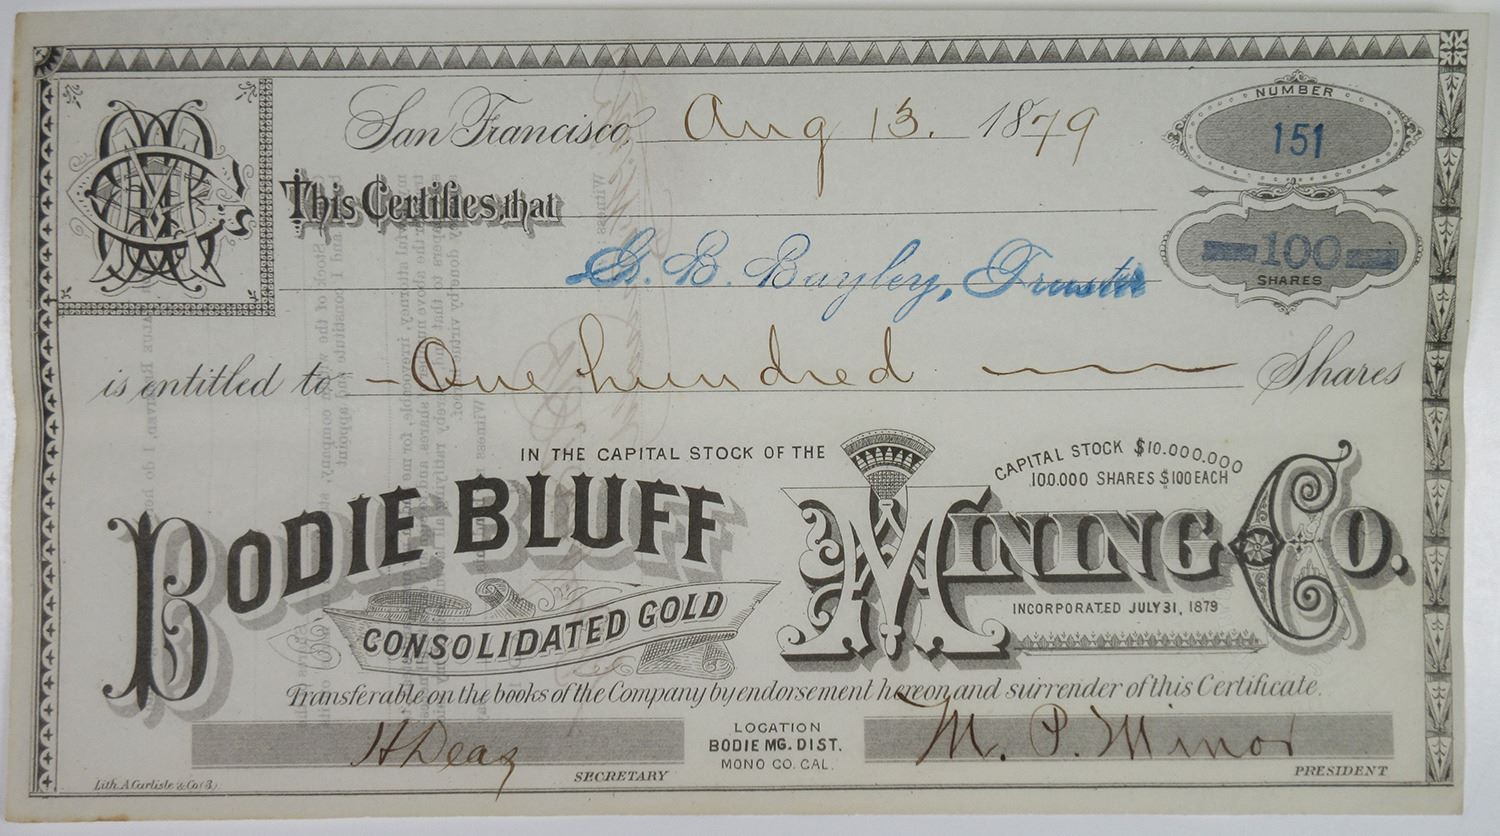 San Francisco, Aug 13. 1879
NUMBER
151
This Certifies, that
G. B. Bayley, Trustee
100
SHARES
is entitled to One hundred Shares
IN THE CAPITAL STOCK OF THE
CAPITAL STOCK $10.000.000
100.000 SHARES $100 EACH
BODIE BLUFF
CONSOLIDATED GOLD
MINING CO.
INCORPORATED JULY 31, 1879
Transferable on the books of the Company by endorsement hereon and surrender of this Certificate.
H Deas
SECRETARY
LOCATION
BODIE MG. DIST.
MONO CO. CAL.
M. P. Minor
PRESIDENT
Lith. A. Carlisle & Co.